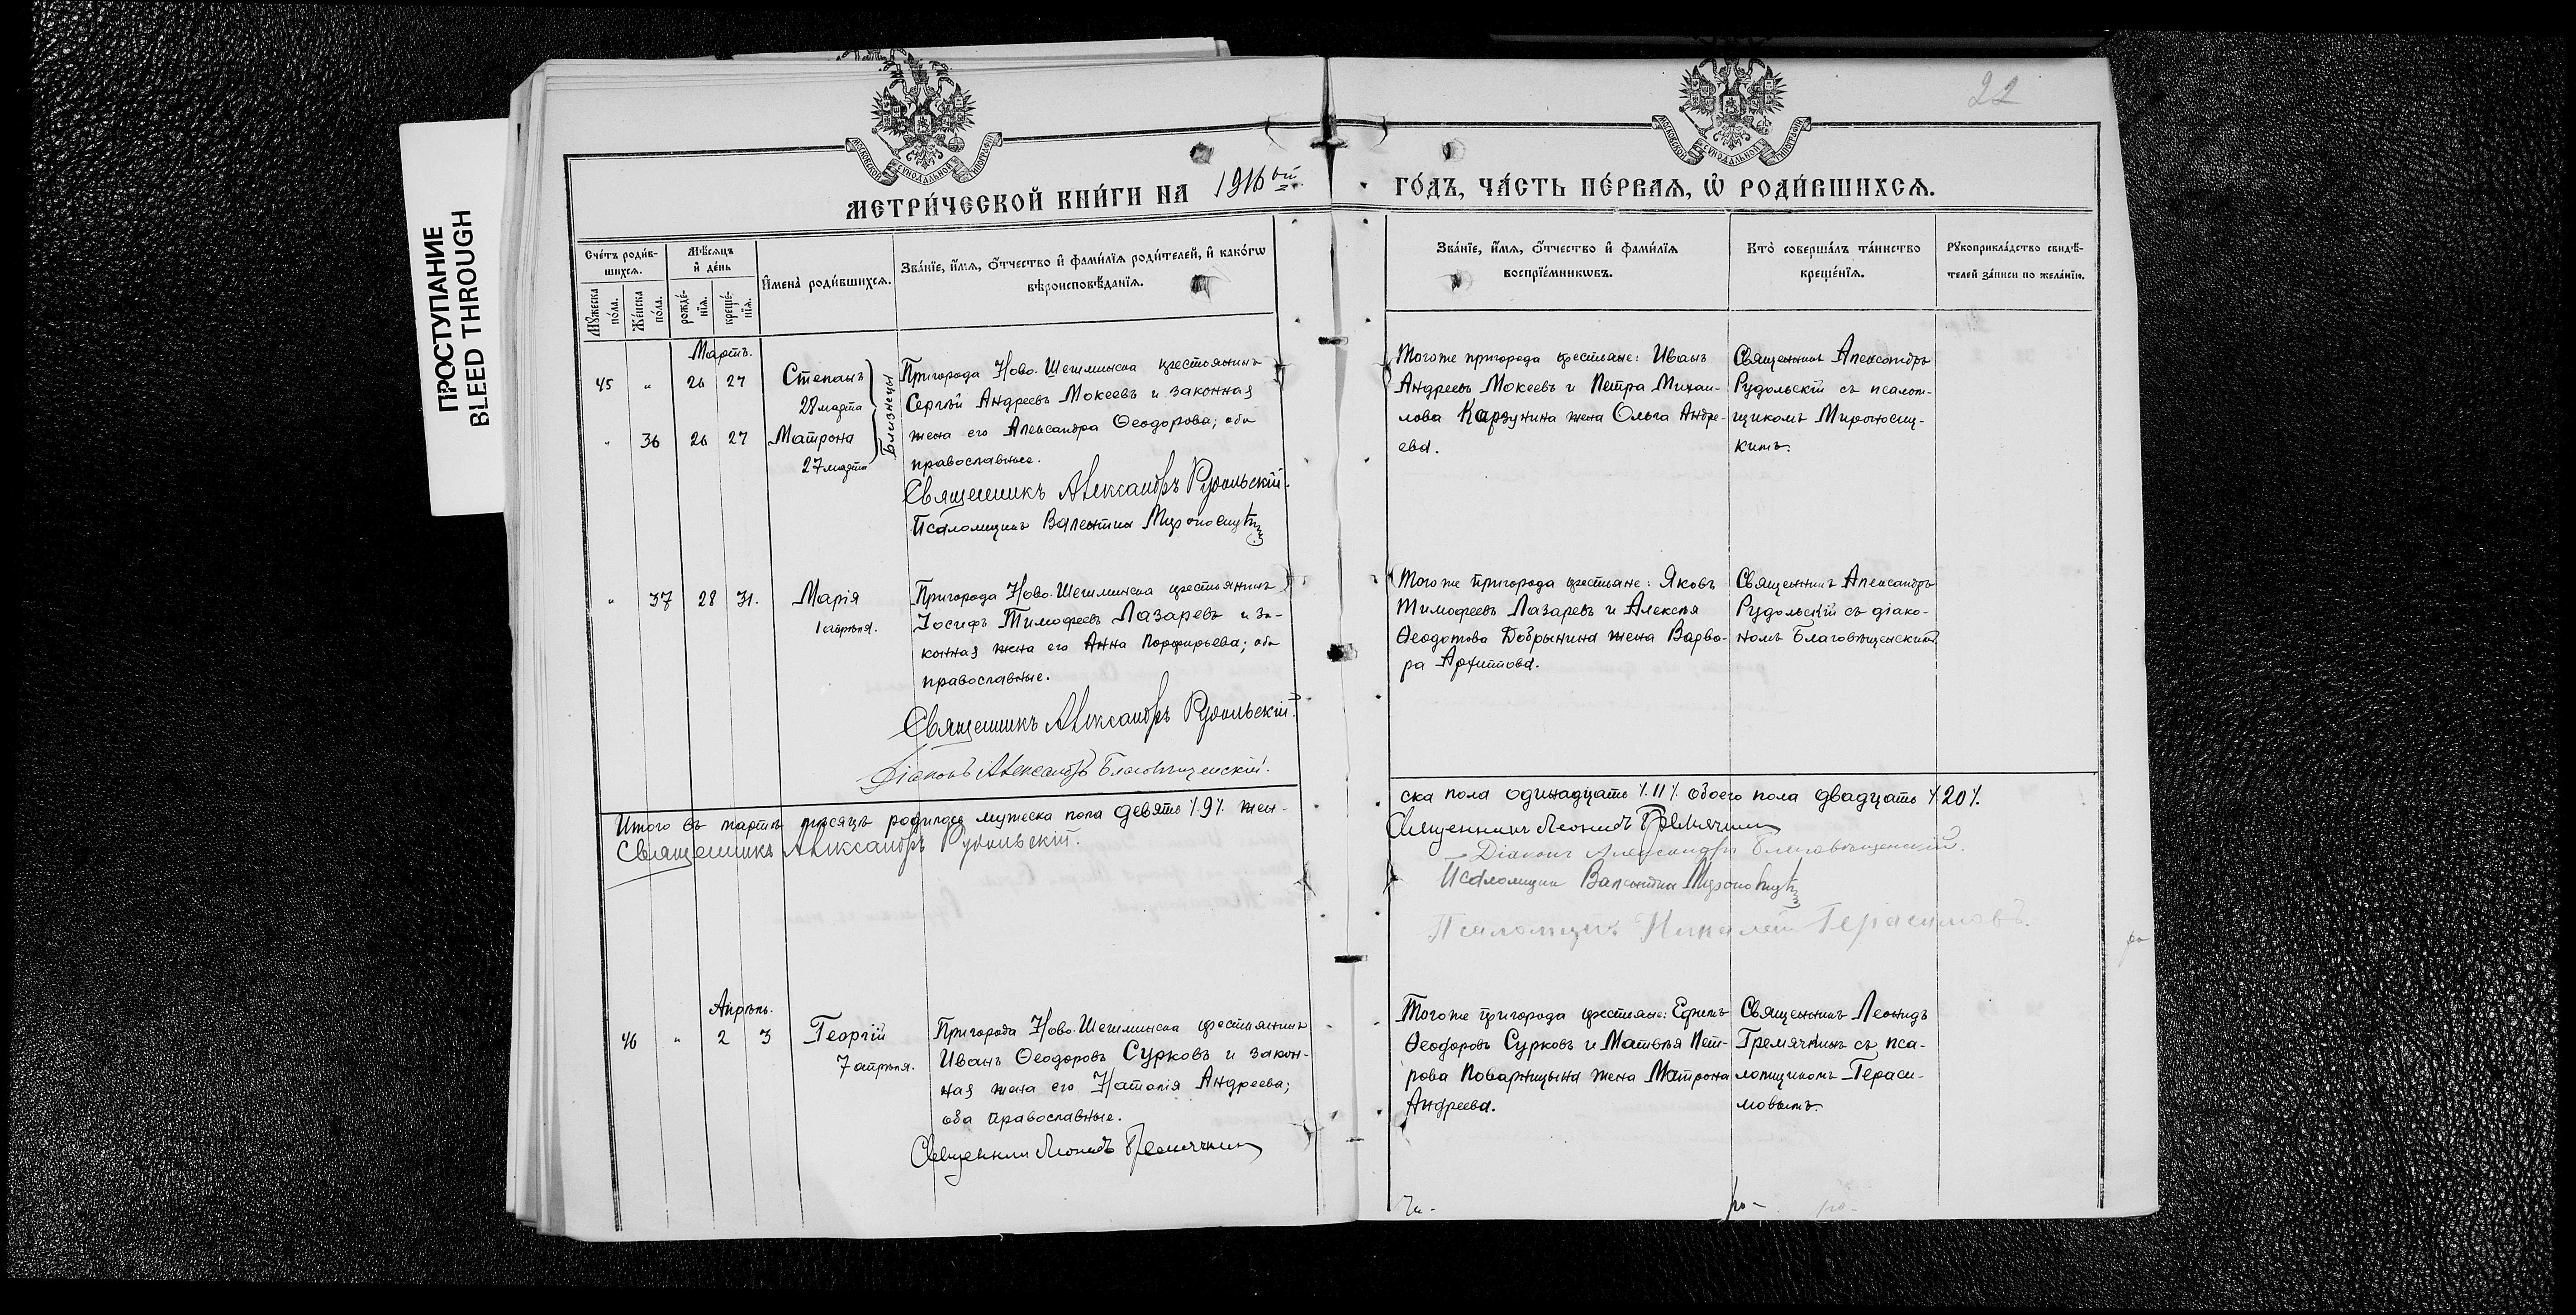 ПРОСТУПАНИЕ
BLEED THROUGH
22
МОСКОВСКОЙ СѴНОДАЛЬНОЙ ТИПОГРАФІИ
МОСКОВСКОЙ СѴНОДАЛЬНОЙ ТИПОГРАФІИ
МЕТРИ́ЧЕСКОЙ КНИ́ГИ НА 1916 ый
ГО́ДЪ, ЧА́СТЬ ПЕ́РВАЯ, Ѡ҆ РОДИ́ВШИХСЯ.
Сче́тъ роди́в-
шихся.
Мѣ́сяцъ
и҆ де́нь
Мꙋ́жеска по́ла.
Же́нска по́ла.
рожде́-
нїя.
креще́-
нїя.
И҆мена̀ роди́вшихся.
Зва́нїе, и҆́мя, ѻ҆́тчество и҆ фами́лїя роди́телей, и҆ како́гѡ
вѣроисповѣ́данїя.
Зва́нїе, и҆́мя, ѻ҆́тчество и҆ фами́лїя
воспрїе́мникѡвъ.
Кто̀ соверша́лъ та́инство
креще́нїя.
Рꙋкоприкла́дство свидѣ́-
телей за́писи по жела́нїю.
Мартъ.
45 „ 26 27 Степанъ
28 марта
„ 36 26 27 Матрона
27 марта
Близнецы
Пригорода Ново-Шешминска крестьянинъ
Сергѣй Андреевъ Мокеевъ и законная
жена его Александра Ѳеодорова; оба
православные.
Священникъ Александръ Рудольскій.
Псаломщикъ Валентин Мироносицкій
Тогоже пригорода крестьяне: Иванъ
Андреевъ Мокеевъ и Петра Михаи-
лова Карзунина жена Ольга Андре-
ева.
Священникъ Александръ
Рудольскій съ псалом-
щикомъ Мироносиц-
кимъ.
„ 37 28 31. Марія
1 апрѣля.
Пригорода Ново-Шешминска крестьянинъ
Іосифъ Тимофеевъ Лазаревъ и за-
конная жена его Анна Порфирьева; оба
православные.
Священникъ Александръ Рудольскій.
Діаконъ Александръ Благовѣщенскій.
Того же пригорода крестьяне: Яковъ
Тимофеевъ Лазаревъ и Алексѣя
Ѳеодотова Добрынина жена Варва-
ра Архиппова.
Священникъ Александръ
Рудольскій съ діако-
номъ Благовѣщенскимъ
Итого въ мартѣ мѣсяцѣ родилось мужеска пола девять /.9/. жен-
ска пола одинадцать /.11/. обоего пола двадцать /.20/.
Священникъ Александръ Рудольскій.
Священникъ Леонидъ Гремячкин
Діаконъ Александръ Благовѣщенскій.
Псаломщик Валентин Мироносицкій
Псаломщикъ Николай Герасимовъ.
Апрѣль.
46 „ 2 3 Георгій
7 апрѣля.
Пригорода Ново-Шешминска крестьянинъ
Иванъ Ѳеодоровъ Сурковъ и закон-
ная жена его Наталія Андреева;
оба православные.
Священник Леонидъ Гремячкин
Того же пригорода крестьяне: Ефимъ
Ѳеодоровъ Сурковъ и Матвѣя Пет-
рова Поварницына жена Матрона
Андреева.
Священникъ Леонидъ
Гремячкинъ съ пса-
ломщикомъ Гераси-
мовымъ.